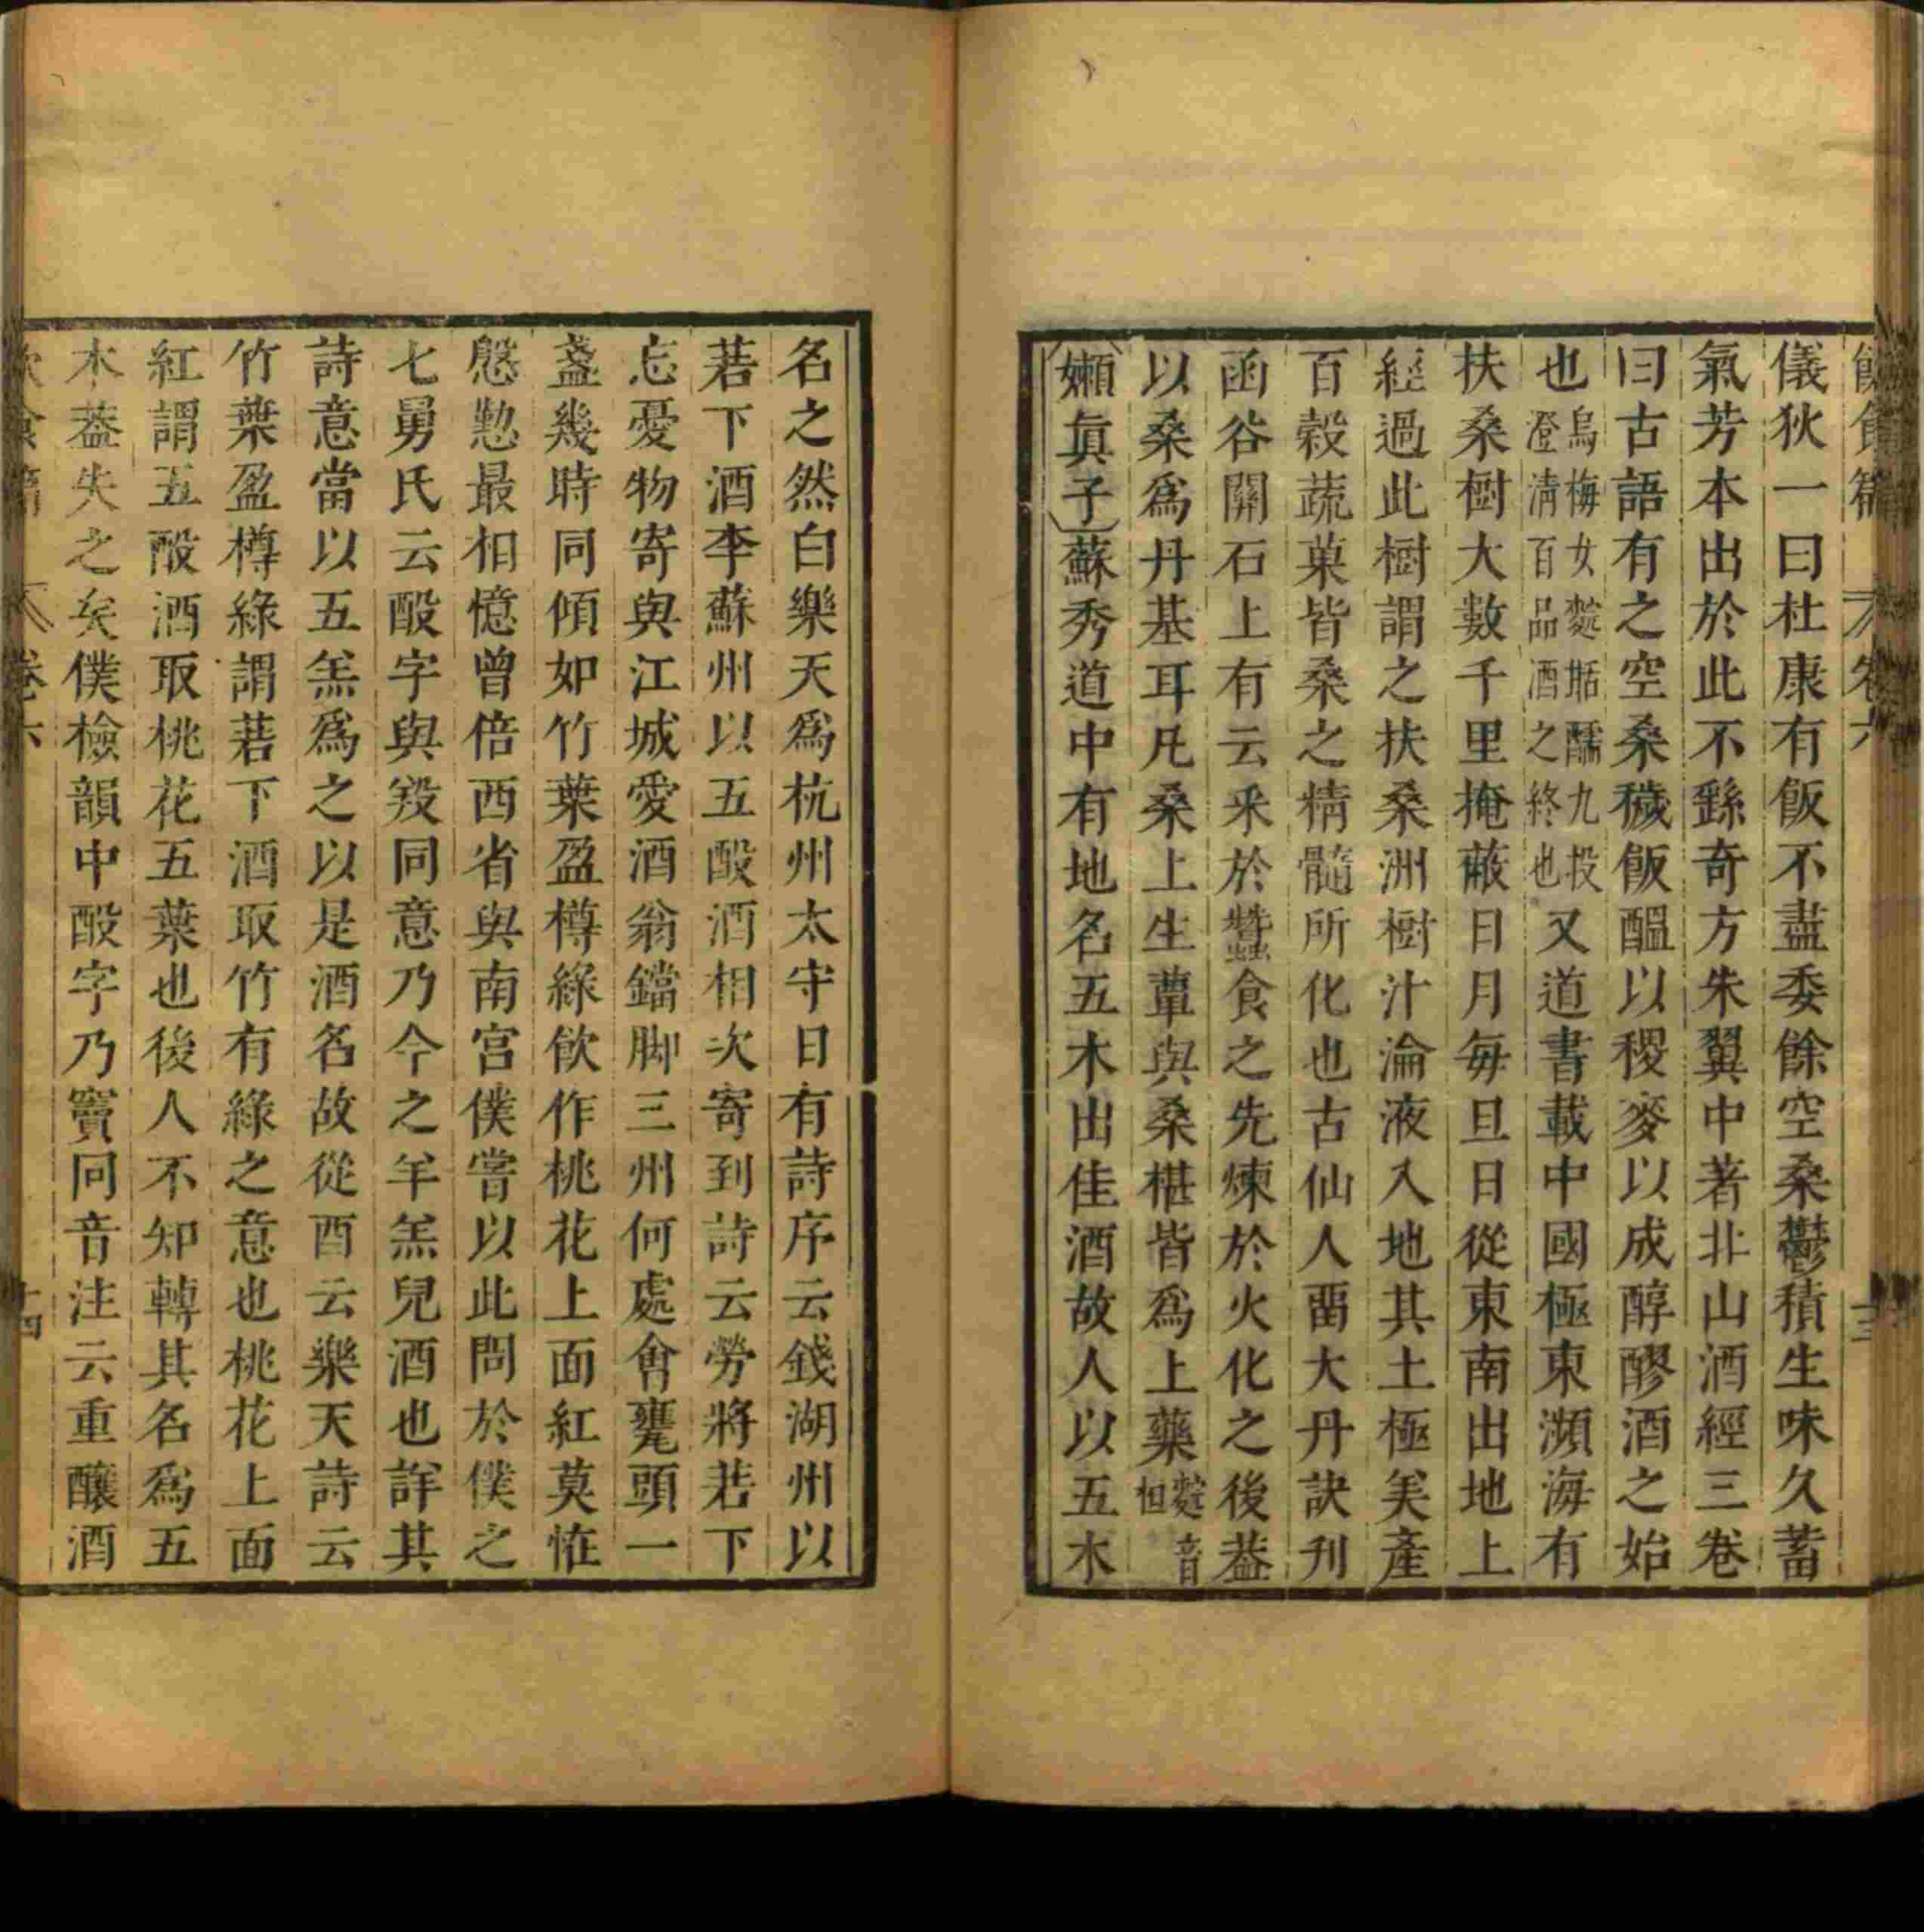 飲食篇 卷六 十三
儀狄一曰杜康有飯不盡委餘空桑鬱積生味久蓄
氣芳本出於此不繇奇方朱翼中著北山酒經三卷
曰古語有之空桑穢飯醞以稷麥以成醇醪酒之始
也烏梅女䴷甛醹九投澄清百品酒之終也又道書載中國極東瀕海有
扶桑樹大數千里掩蔽日月每旦日從東南出地上
經過此樹謂之扶桑洲樹汁淪液入地其土極美產
百穀蔬菓皆桑之精髓所化也古仙人畱大丹訣刋
函谷關石上有云采於蠶食之先煉於火化之後葢
以桑爲丹基耳凡桑上生蕈與桑椹皆爲上藥䴷音怛
嬾眞子蘇秀道中有地名五木出佳酒故人以五木
名之然白樂天爲杭州太守日有詩序云錢湖州以
若下酒李蘇州以五酘酒相次寄到詩云勞將若下
忘憂物寄與江城愛酒翁鐺脚三州何處會甕頭一
盞幾時同傾如竹葉盈樽綠飲作桃花上面紅莫恠
慇懃最相憶曾倍西省與南宮僕嘗以此問於僕之
七舅氏云酘字與羖同意乃今之羊羔兒酒也詳其
詩意當以五羔爲之以是酒名故從酉云樂天詩云
竹葉盈樽綠謂若下酒取竹有綠之意也桃花上面
紅謂五酘酒取桃花五葉也後人不知轉其名爲五
木葢失之矣僕檢韻中酘字乃竇同音注云重釀酒
飲食篇 卷六 十四